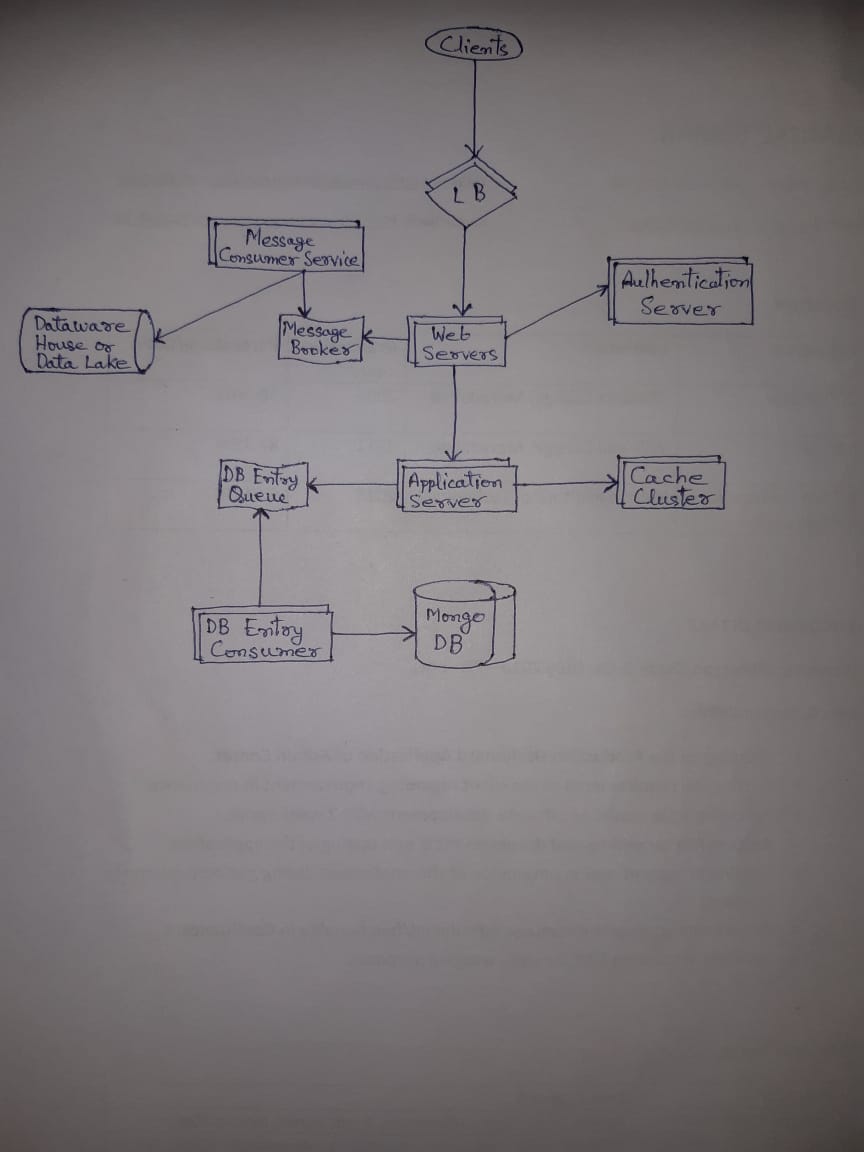 Clients
LB
Message
Consumer Service
Authentication
Server
Dataware
House or
Data Lake
Message
Brocker
Web
Servers
DB Entry
Queue
Application
Server
Cache
Cluster
DB Entry
Consumer
Mongo
DB